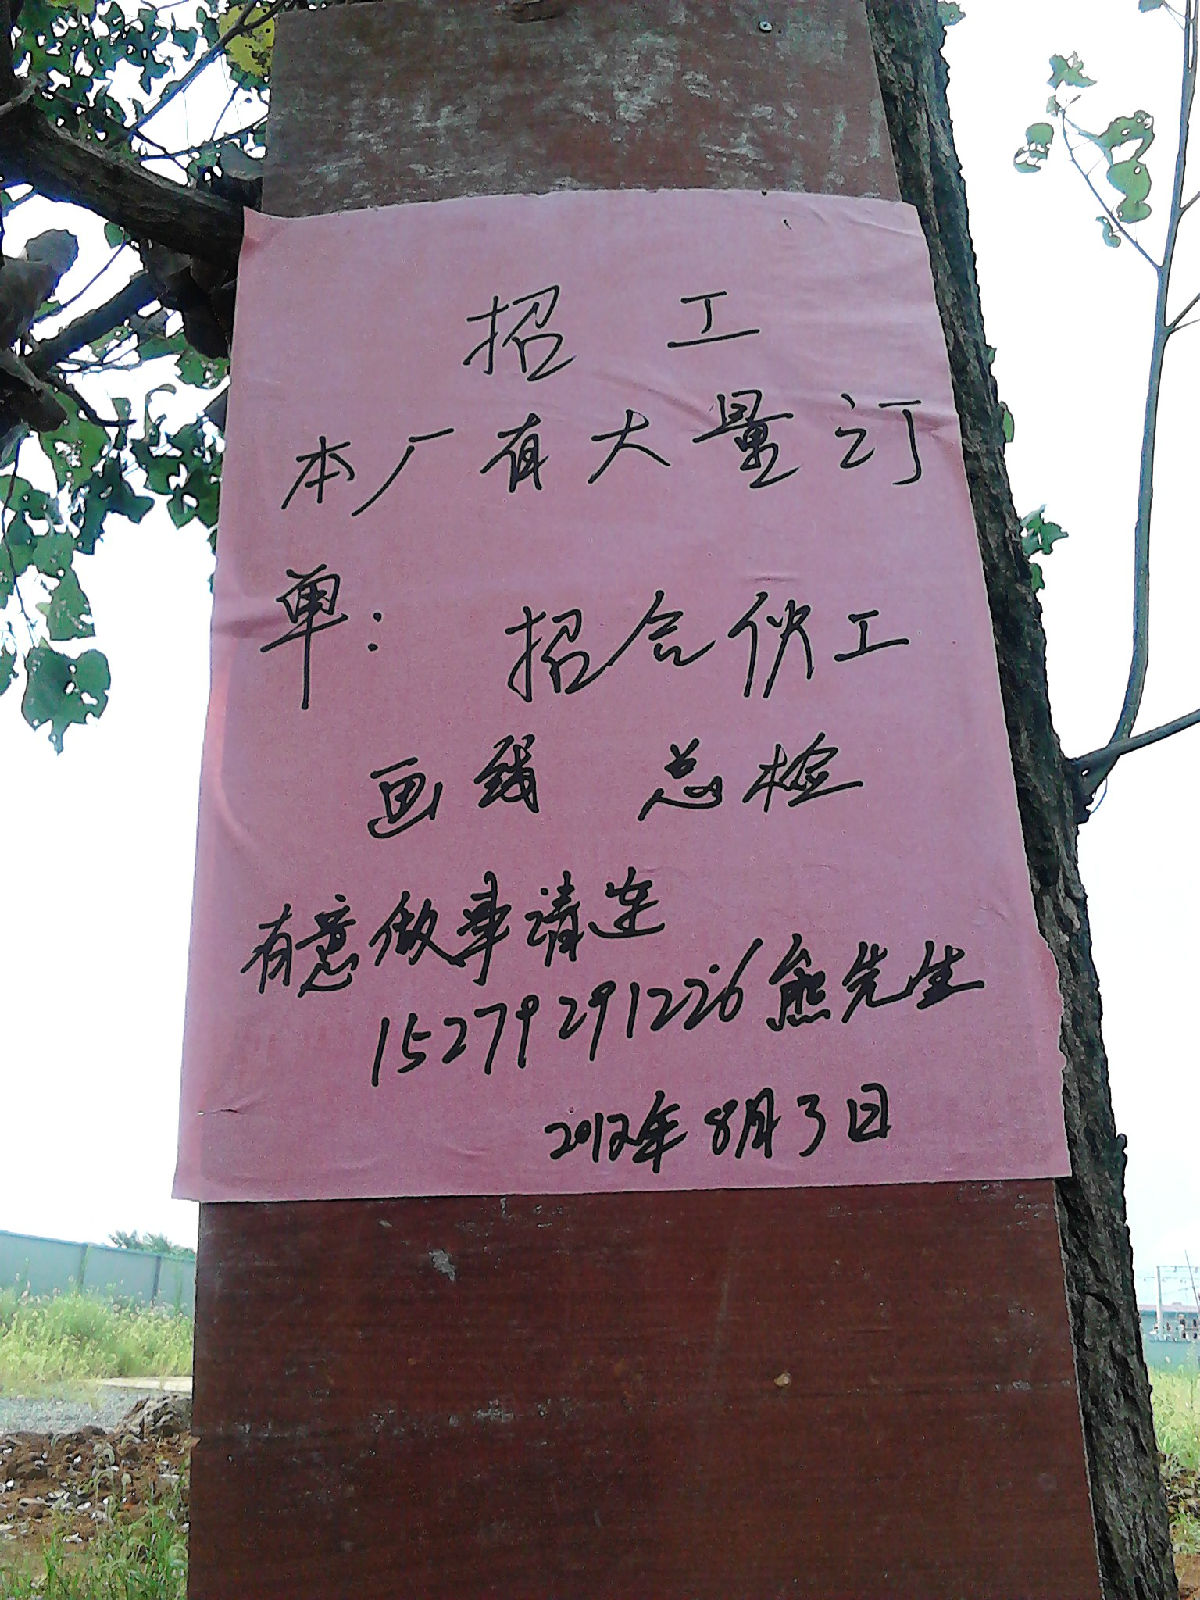 招 工
本厂有大量订
单: 招合伙工
画线 总检
有意做事请连
15279291226熊先生
2012年8月3日